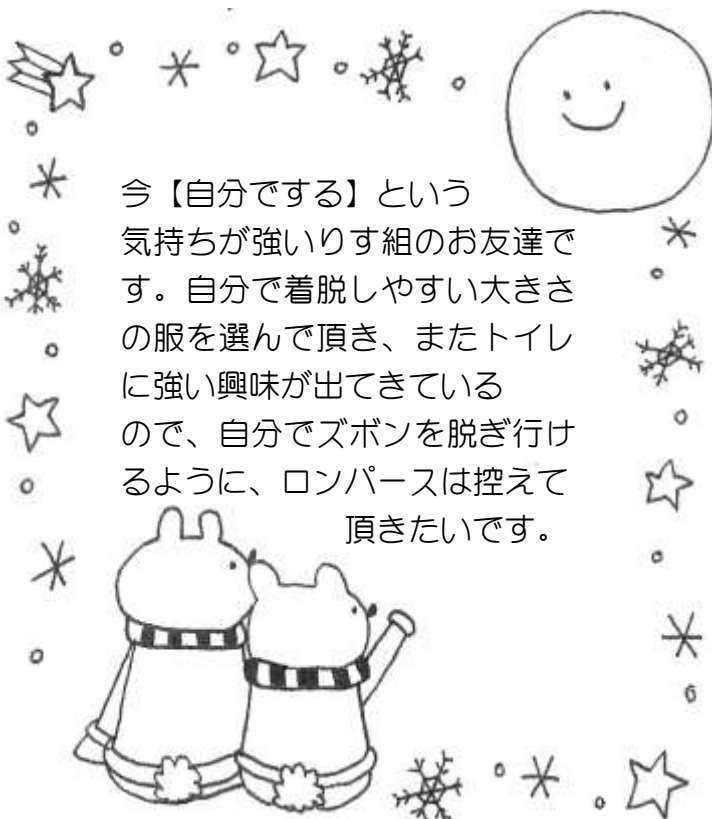 今【自分でする】という
気持ちが強いりす組のお友達で
す。自分で着脱しやすい大きさ
の服を選んで頂き、またトイレ
に強い興味が出てきている
ので、自分でズボンを脱ぎ行け
るように、ロンパースは控えて
頂きたいです。